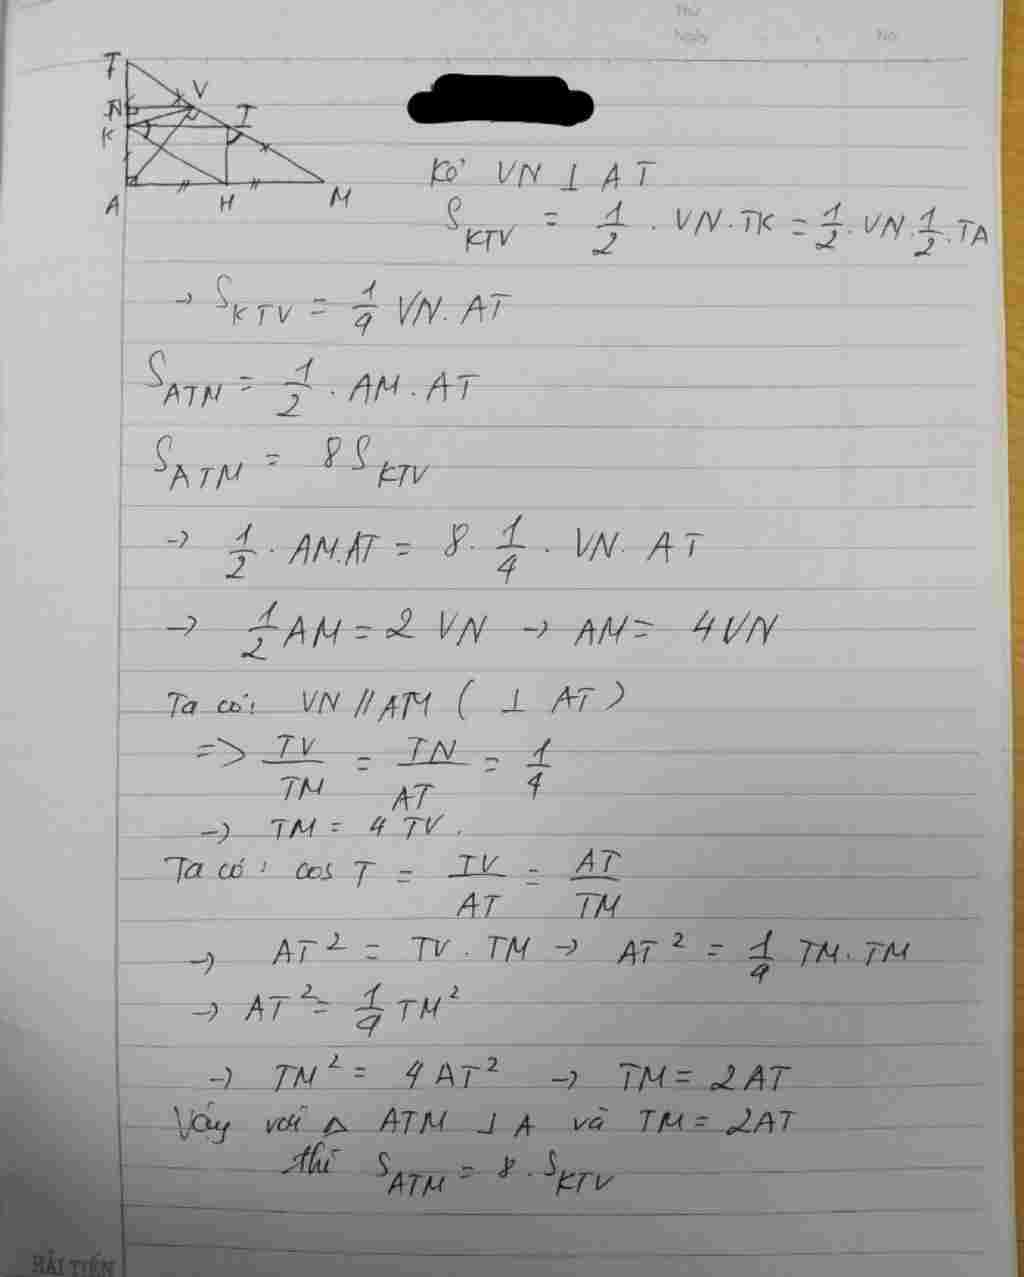 Thứ
Ngày No
T
N V
K I
A H M
Kẻ VN ⊥ AT
S_KTV = 1/2 . VN . TK = 1/2 . VN . 1/2 . TA
→ S_KTV = 1/4 VN . AT
S_ATM = 1/2 . AM . AT
S_ATM = 8 S_KTV
→ 1/2 . AM . AT = 8 . 1/4 . VN . AT
→ 1/2 AM = 2 VN → AM = 4VN
Ta có: VN // AM ( ⊥ AT )
=> TV/TM = TN/AT = 1/4
→ TM = 4 TV .
Ta có : cos T = TV/AT = AT/TM
→ AT² = TV . TM → AT² = 1/4 TM . TM
→ AT² = 1/4 TM²
→ TM² = 4 AT² → TM = 2AT
Vậy với △ ATM ⊥ A và TM = 2AT
thì S_ATM = 8 . S_KTV
HẢI TIẾN